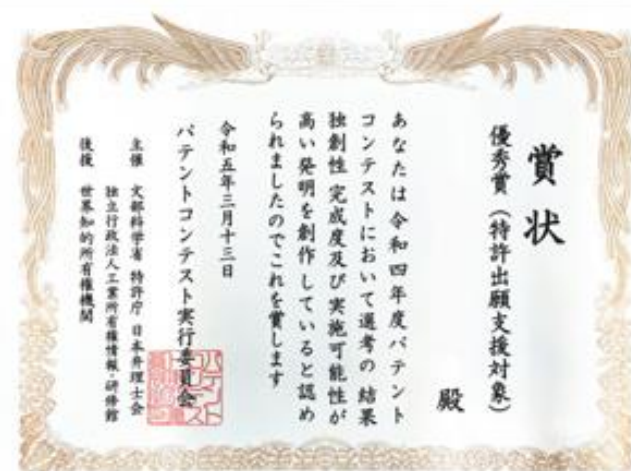 賞状
優秀賞（特許出願支援対象）
殿
あなたは令和四年度パテント
コンテストにおいて選考の結果
独創性 完成度及び実施可能性が
高い発明を創作していると認め
られましたのでこれを賞します
令和五年三月十三日
パテントコンテスト実行委員会
主催 文部科学省 特許庁 日本弁理士会
独立行政法人工業所有権情報・研修館
後援 世界知的所有権機関